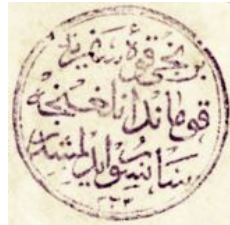 برنجی قوه سفریه
قوماندانلغنجه
سانسور ایدلمشدر
٣٣٣